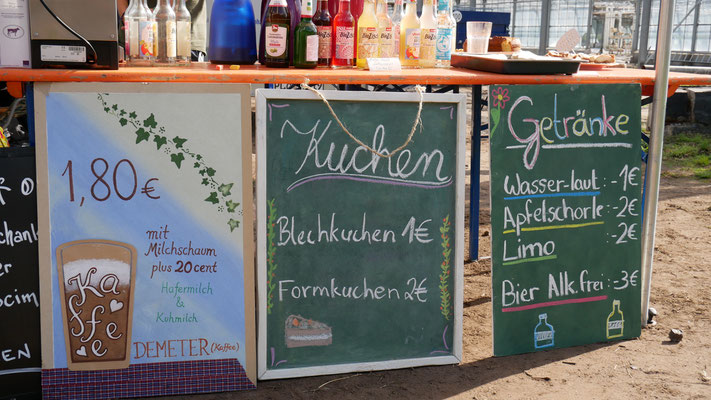 1,80 €
mit
Milchschaum
plus 20 cent
Hafermilch
&
Kuhmilch
DEMETER (Kaffee)
Kaffee
Kuchen
Blechkuchen 1€
Formkuchen 2€
Getränke
Wasser-laut: -1€
Apfelschorle: -2€
Limo : -2€
Bier Alk.frei: -3€